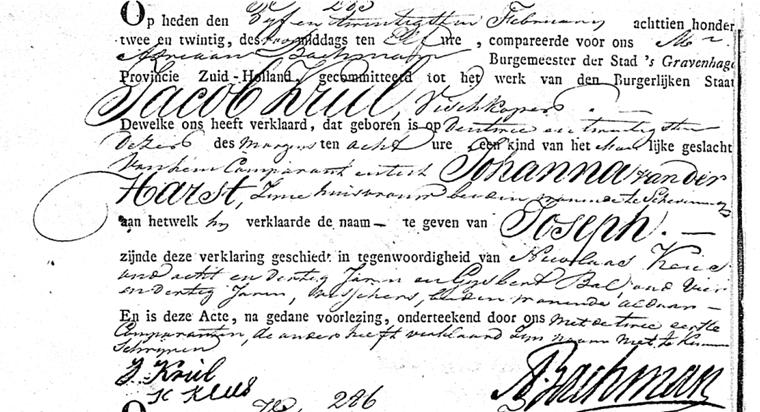 N. 285
Op heden den Vyf en twintigsten February achttien honder
twee en twintig, des voormiddags ten Elf ure, compareerde voor ons Mr.
Adriaan Bachman Burgemeester der Stad 's Gravenhage
Provincie Zuid-Holland, gecommitteerd tot het werk van den Burgerlijken Staat
Jacob Krul, Vischkoper
Dewelke ons heeft verklaard, dat geboren is op den drie en twintigsten
dezer des morgens ten acht ure een kind van het Manlijke geslacht
van hem Comparant en tech Johanna van der
Harst, zyne huisvrouw beiden wonende te Scheveningen
aan hetwelk hy verklaarde de naam — te geven van Joseph. —
zijnde deze verklaring geschiedt in tegenwoordigheid van Nicolaas Keus
oud acht en dertig Jaren en Gysbert Bal oud vier
en dertig Jaren, visschers, beiden wonende aldaar —
En is deze Acte, na gedane voorlezing, onderteekend door ons met de twee eerste
Comparanten, de ander heeft verklaard zyn naam niet te kunnen
Schryven
J. Krul
K Keus
A. Bachman
N. 286
O